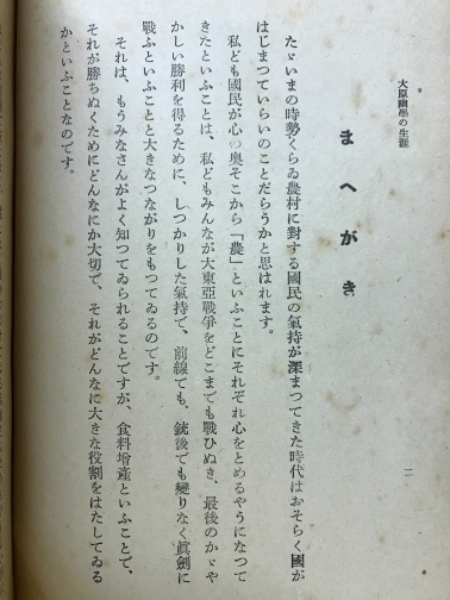 大原幽學の生涯
まへがき
たゞいまの時勢くらゐ農村に對する國民の氣持が深まつてきた時代はおそらく國が
はじまつていらいのことだらうかと思はれます。
私ども國民が心の奥そこから「農」といふことにそれぞれ心をとめるやうになつて
きたといふことは、私どもみんなが大東亞戰爭をどこまでも戰ひぬき、最後のかゞや
かしい勝利を得るために、しつかりした氣持で、前線でも、銃後でも變りなく眞劍に
戰ふといふことと大きなつながりをもつてゐるのです。
それは、もうみなさんがよく知つてゐられることですが、食料增產といふことで、
それが勝ちぬくためにどんなにか大切で、それがどんなに大きな役割をはたしてゐる
かといふことなのです。